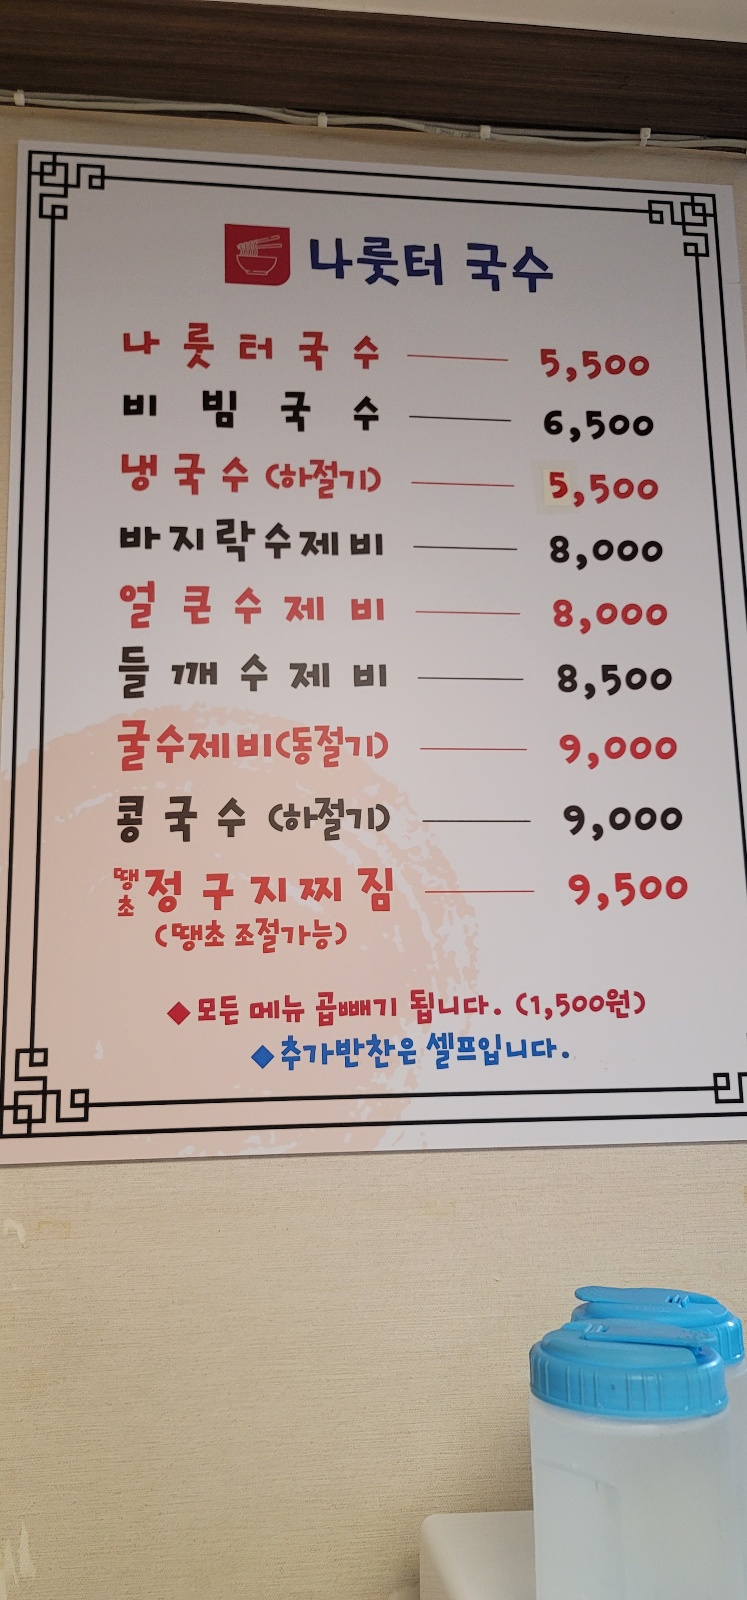 나룻터 국수
나룻터국수 5,500
비빔국수 6,500
냉국수 (하절기) 5,500
바지락수제비 8,000
얼큰수제비 8,000
들깨수제비 8,500
굴수제비(동절기) 9,000
콩국수 (하절기) 9,000
땡초 정구지찌짐 9,500
(땡초 조절가능)
◆모든 메뉴 곱빼기 됩니다. (1,500원)
◆추가반찬은 셀프입니다.